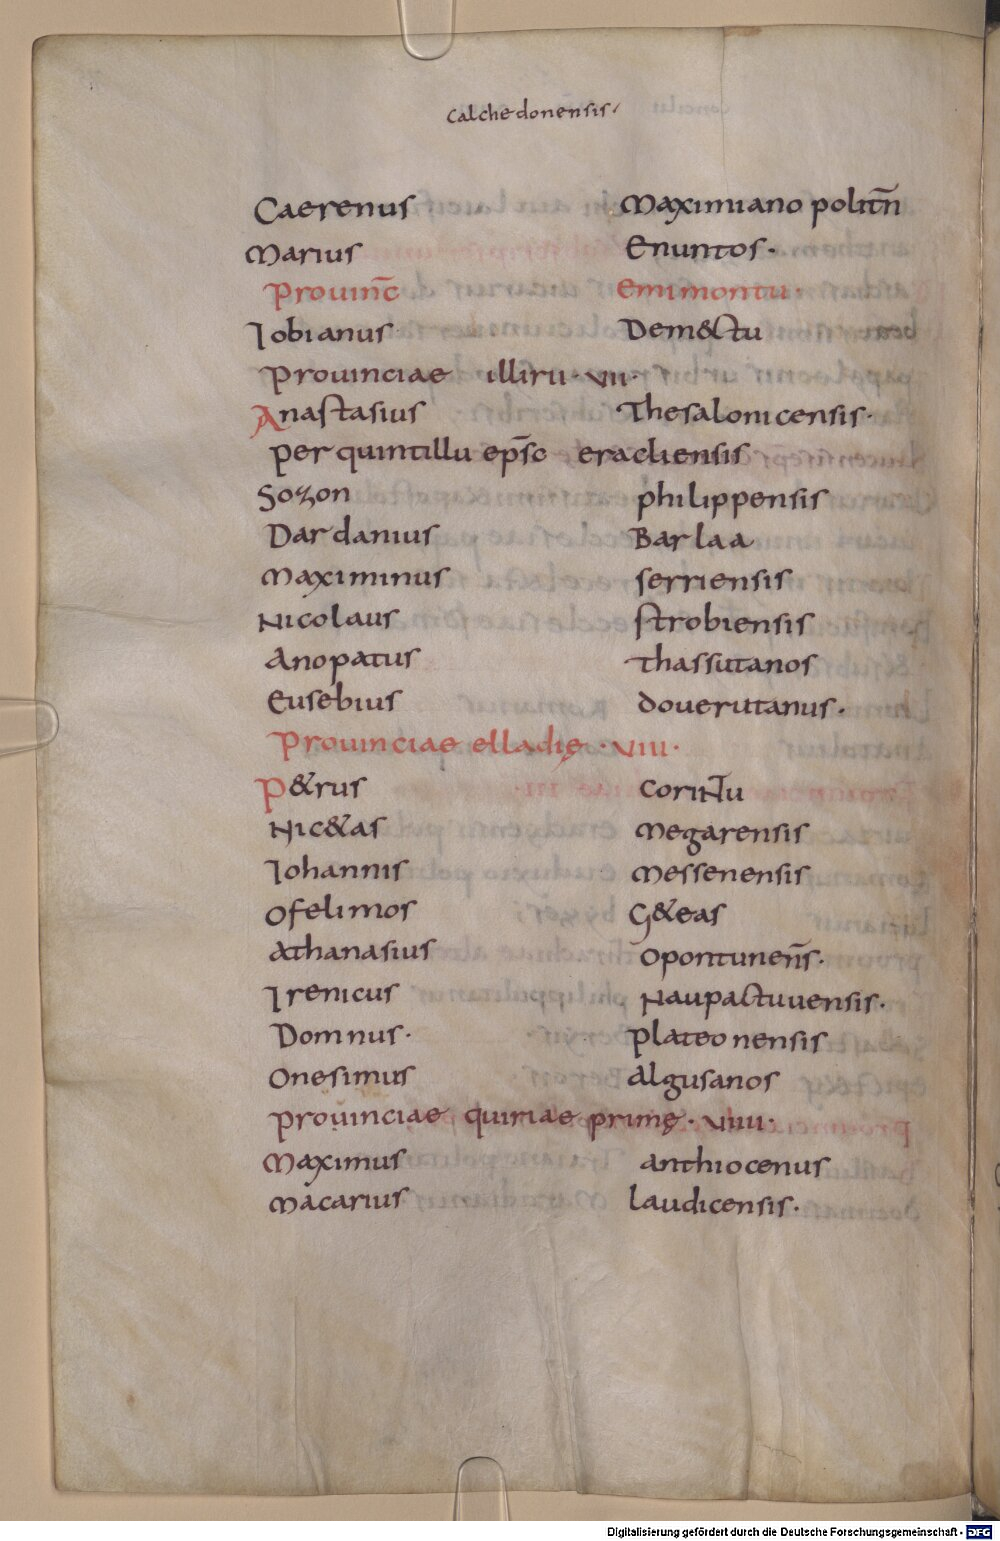 Calchedonensis
Caerenus Maximiano politn̄
Marius Enuntos·
Prouinc̄ Emimontu·
Iobianus Dem&ctu
Prouinciae illiru· VII·
Anastasius Thesalonicensis·
Per quintillu ep̄sc eracliensis
Sozon philippensis
Dardanius Barlaa
Maximinus serriensis
Nicolaus strobiensis
Anopatus thassutanos
Eusebius doueritanus·
Prouinciae elladię· VIII·
P&rus Corintu
Nic&as Megarensis
Iohannis Messenensis
Ofelimos G&eas
Athanasius Opontunens̄·
Irenicus Naupactuuensis·
Domnus· plateonensis
Onesimus Algusanos
Prouinciae quiriae primę· VIIII·
Maximus anthiocenus
Macarius laudicensis·
Digitalisierung gefördert durch die Deutsche Forschungsgemeinschaft - DFG